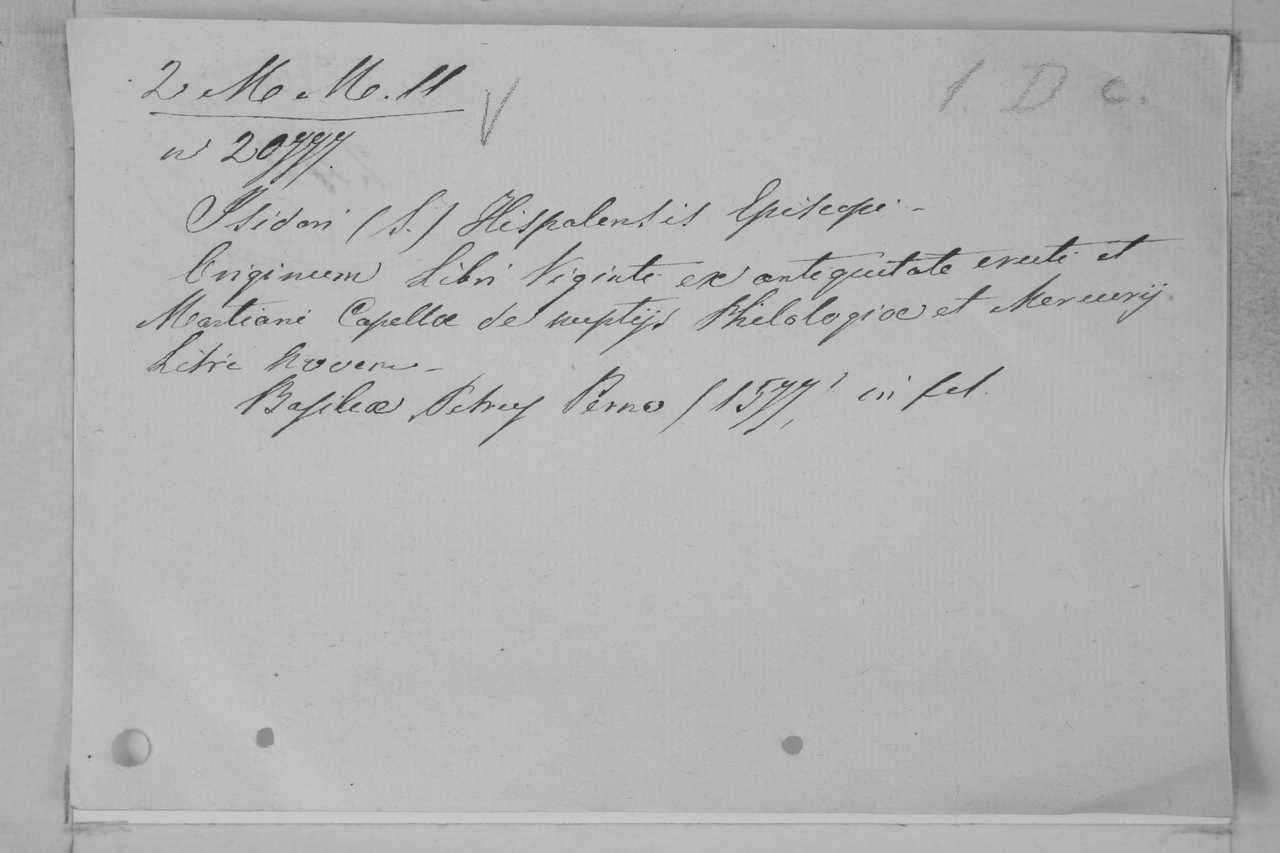 2 M. M. 11 V 1. D c.
n° 20777.
Isidori (S.) Hispalensis Episcopi -
Originum Libri Viginti ex antiquitate eruti et
Martiani Capellæ de nuptijs Philologiæ et Mercurij
Libri Novem -
Basileæ, Petrus Perno (1577, in fol.